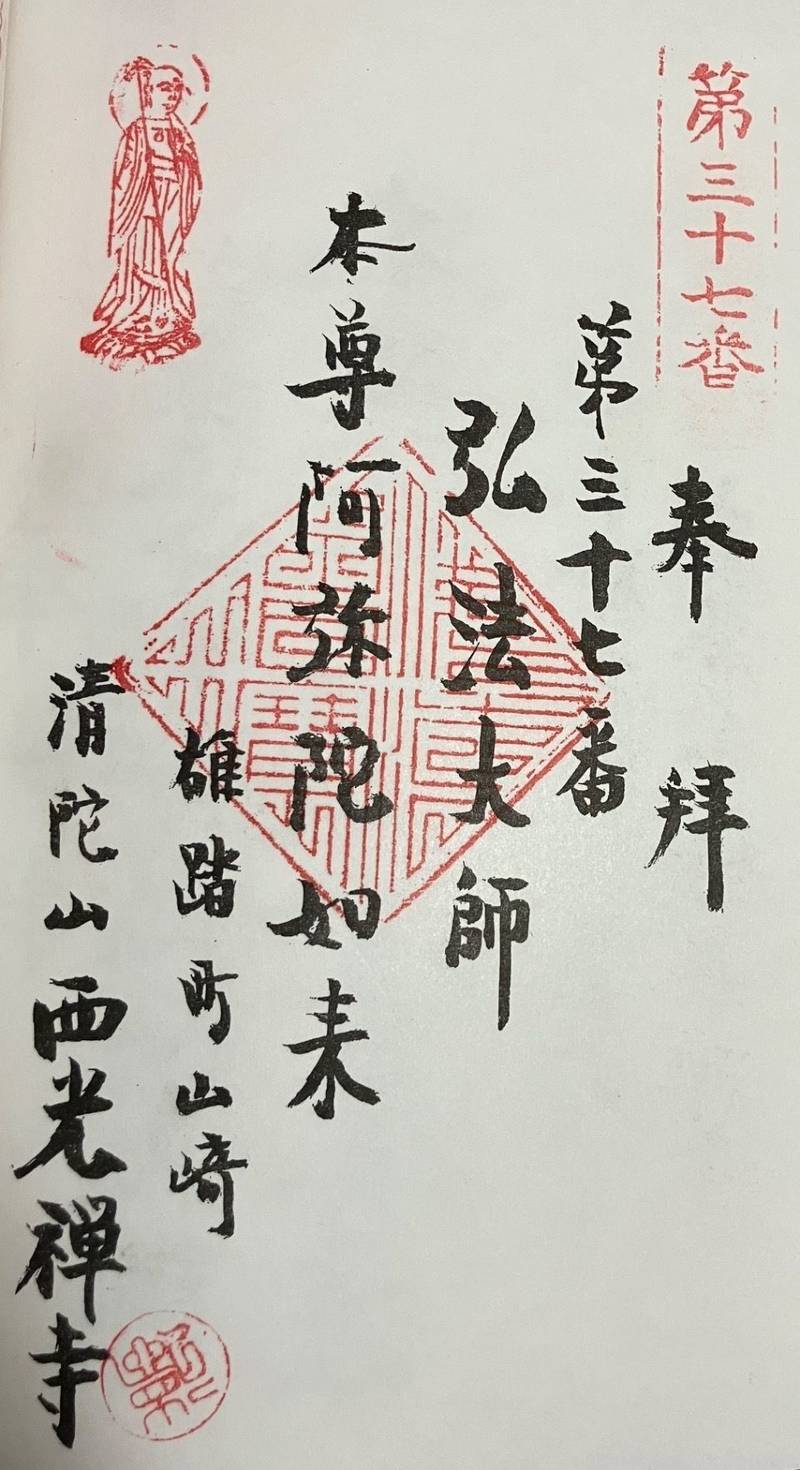 第三十七番
奉拜
第三十七番
弘法大師
本尊阿弥陀如来
雄踏町山崎
清陀山西光禅寺